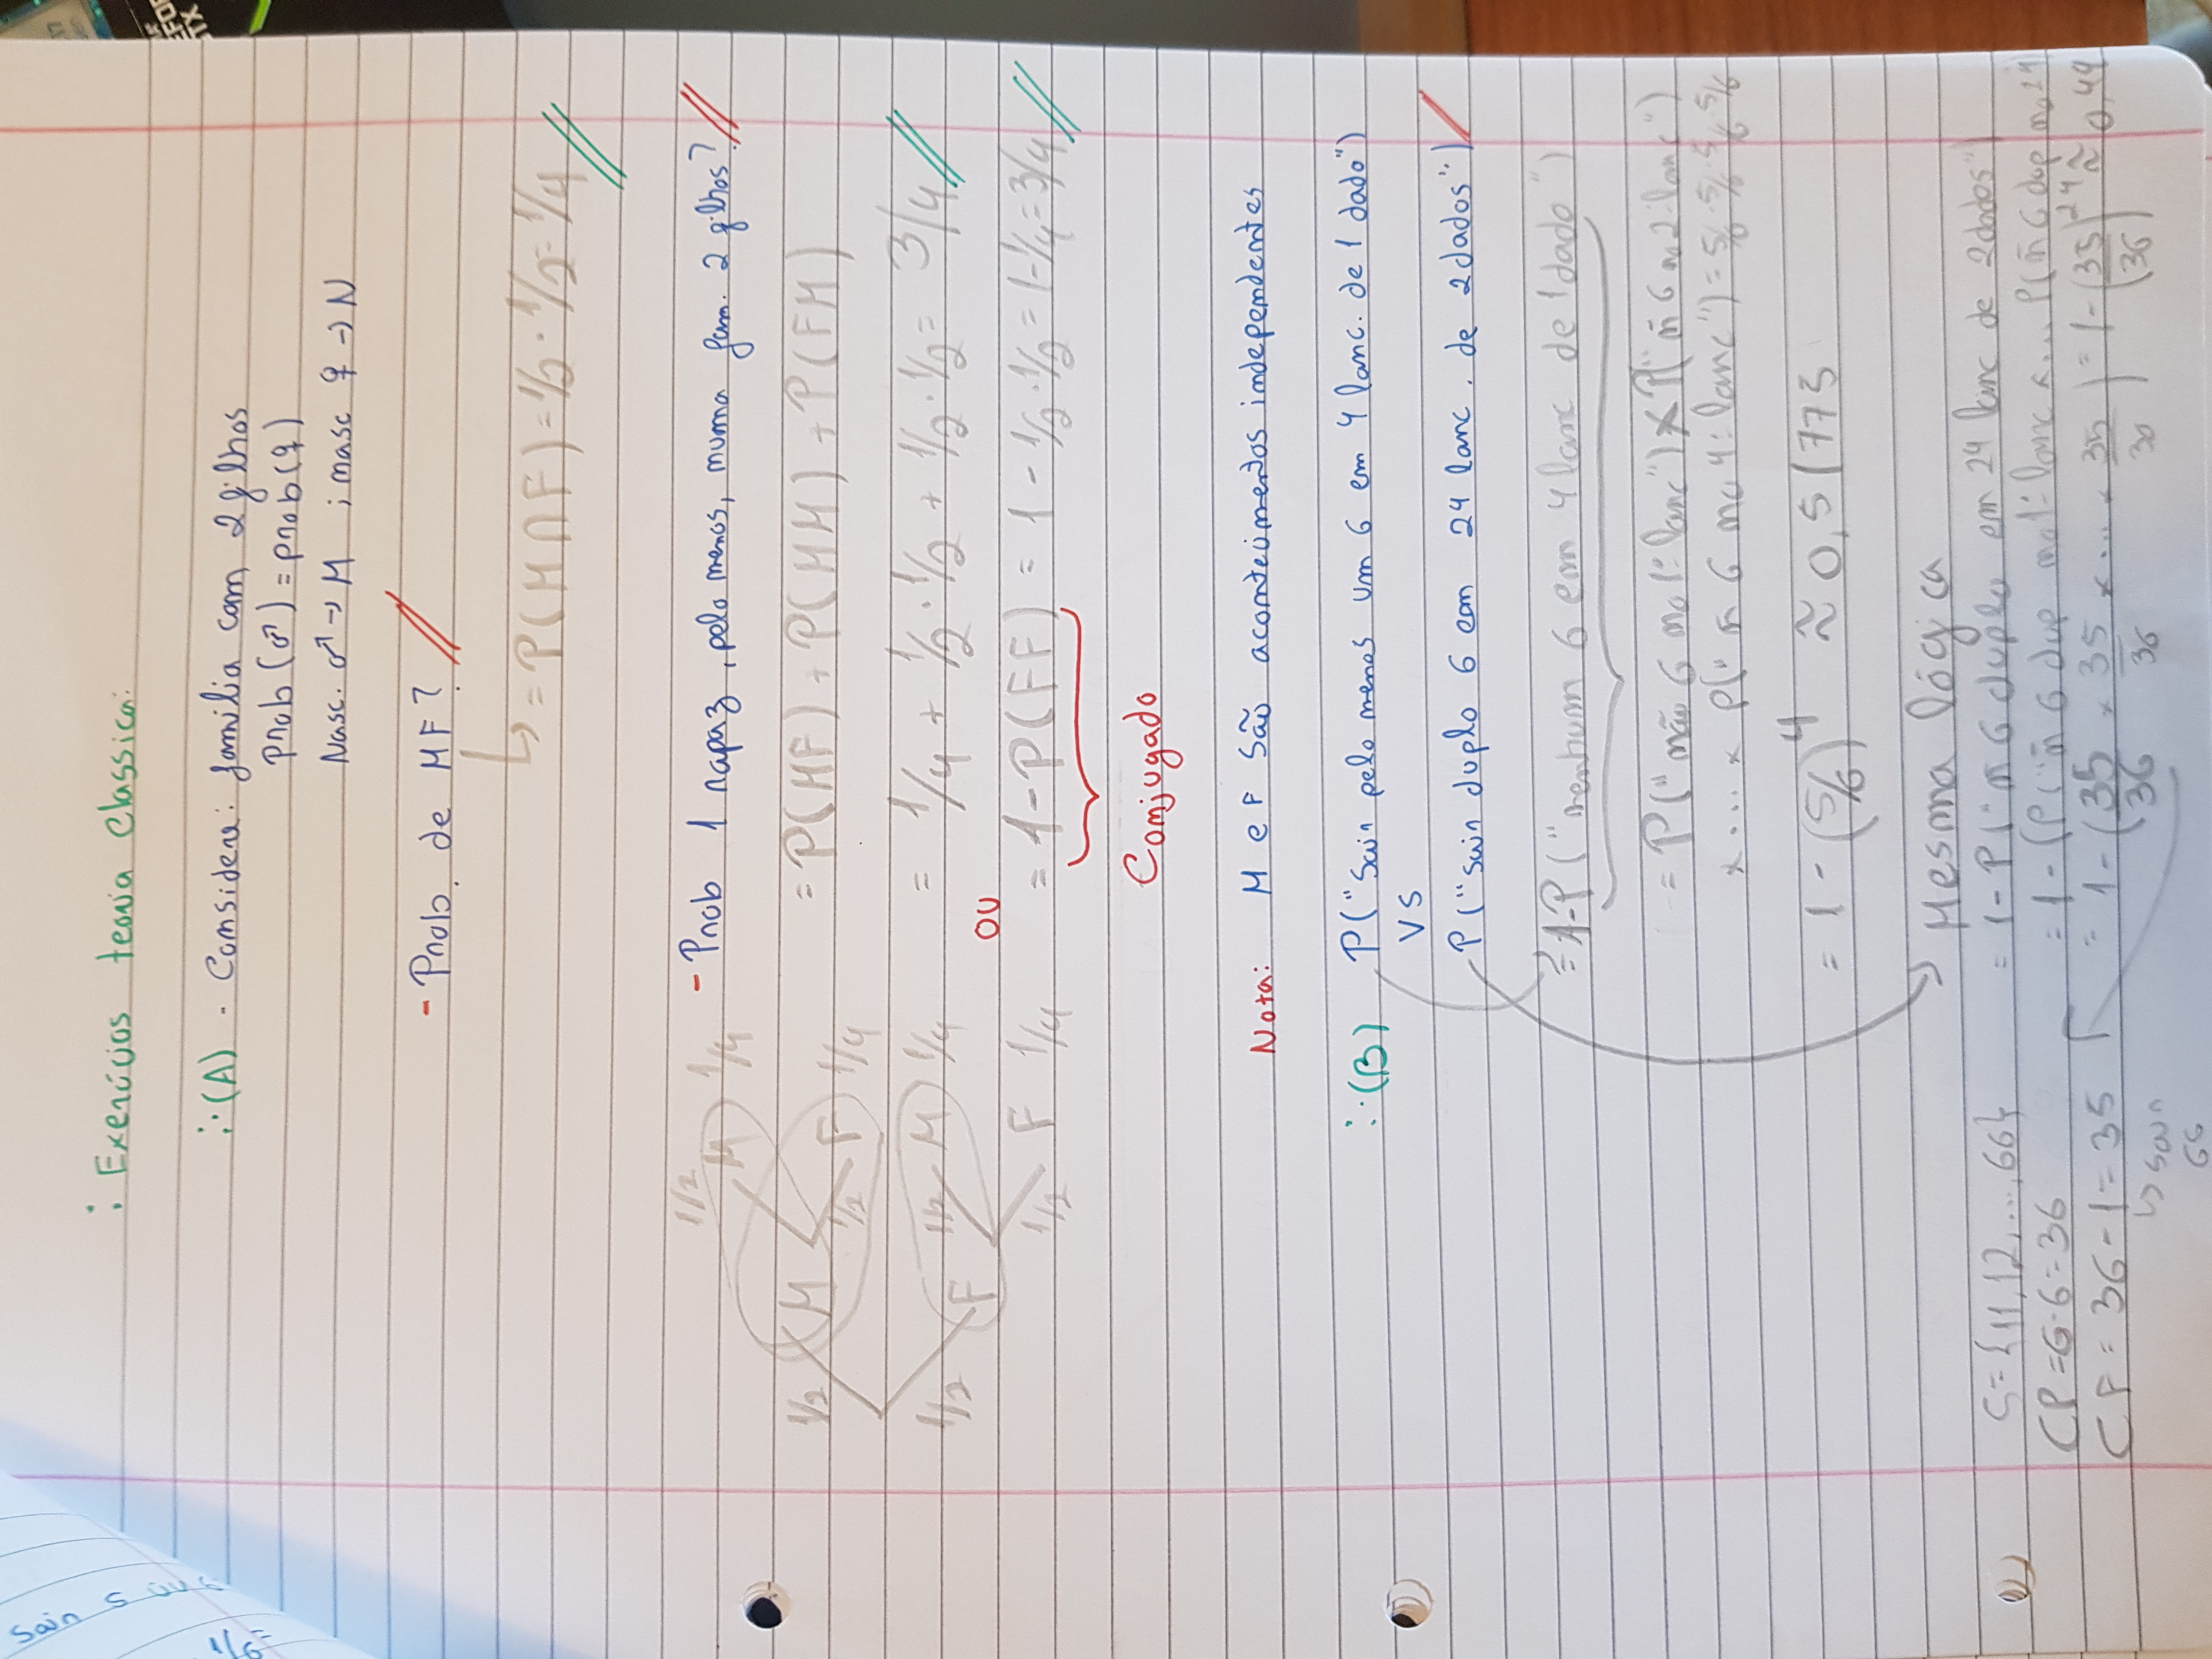 ∴ Exercícios teoria Classica:
∴ (A) - Considere: familia com 2 filhos
prob (♂) = prob (♀)
Nasc. ♂ → M ; nasc ♀ → N
- Prob. de MF?
↳ = P(M∩F) = 1/2 · 1/2 = 1/4
- Prob 1 rapaz, pelo menos, numa fam. 2 filhos?
1/2 M 1/4
1/2 M
1/2 F 1/4
1/2 F
1/2 M 1/4
1/2 F 1/4
= P(MF) + P(MM) + P(FM)
= 1/4 + 1/2 · 1/2 + 1/2 · 1/2 = 3/4
OU
= 1 - P(FF) = 1 - 1/2 · 1/2 = 1 - 1/4 = 3/4
Conjugado
Nota: M e F são acontecimentos independentes
∴ (B) P("Sair pelo menos um 6 em 4 lanc. de 1 dado")
VS
P("sair duplo 6 em 24 lanc. de 2 dados")
= 1-P("nenhum 6 em 4 lanc de 1 dado")
= P("não 6 no 1º lanc") × P("ñ 6 no 2º lanc")
× ... × P("ñ 6 no 4º lanc") = 5/6 · 5/6 · 5/6 · 5/6
= 1 - (5/6)^4 ≈ 0,51775
→ Mesma lógica
= 1 - P("ñ 6 duplo em 24 lanc de 2 dados")
= 1 - (P("ñ 6 dup no 1º lanc × ... P(ñ 6 dup no 24
= 1 - (35/36 × 35/36 × ... × 35/36) = 1 - (35/36)^24 ≈ 0,49
S = {11, 12, ..., 66}
CP = 6·6 = 36
CF = 36 - 1 = 35
↳ sair
66